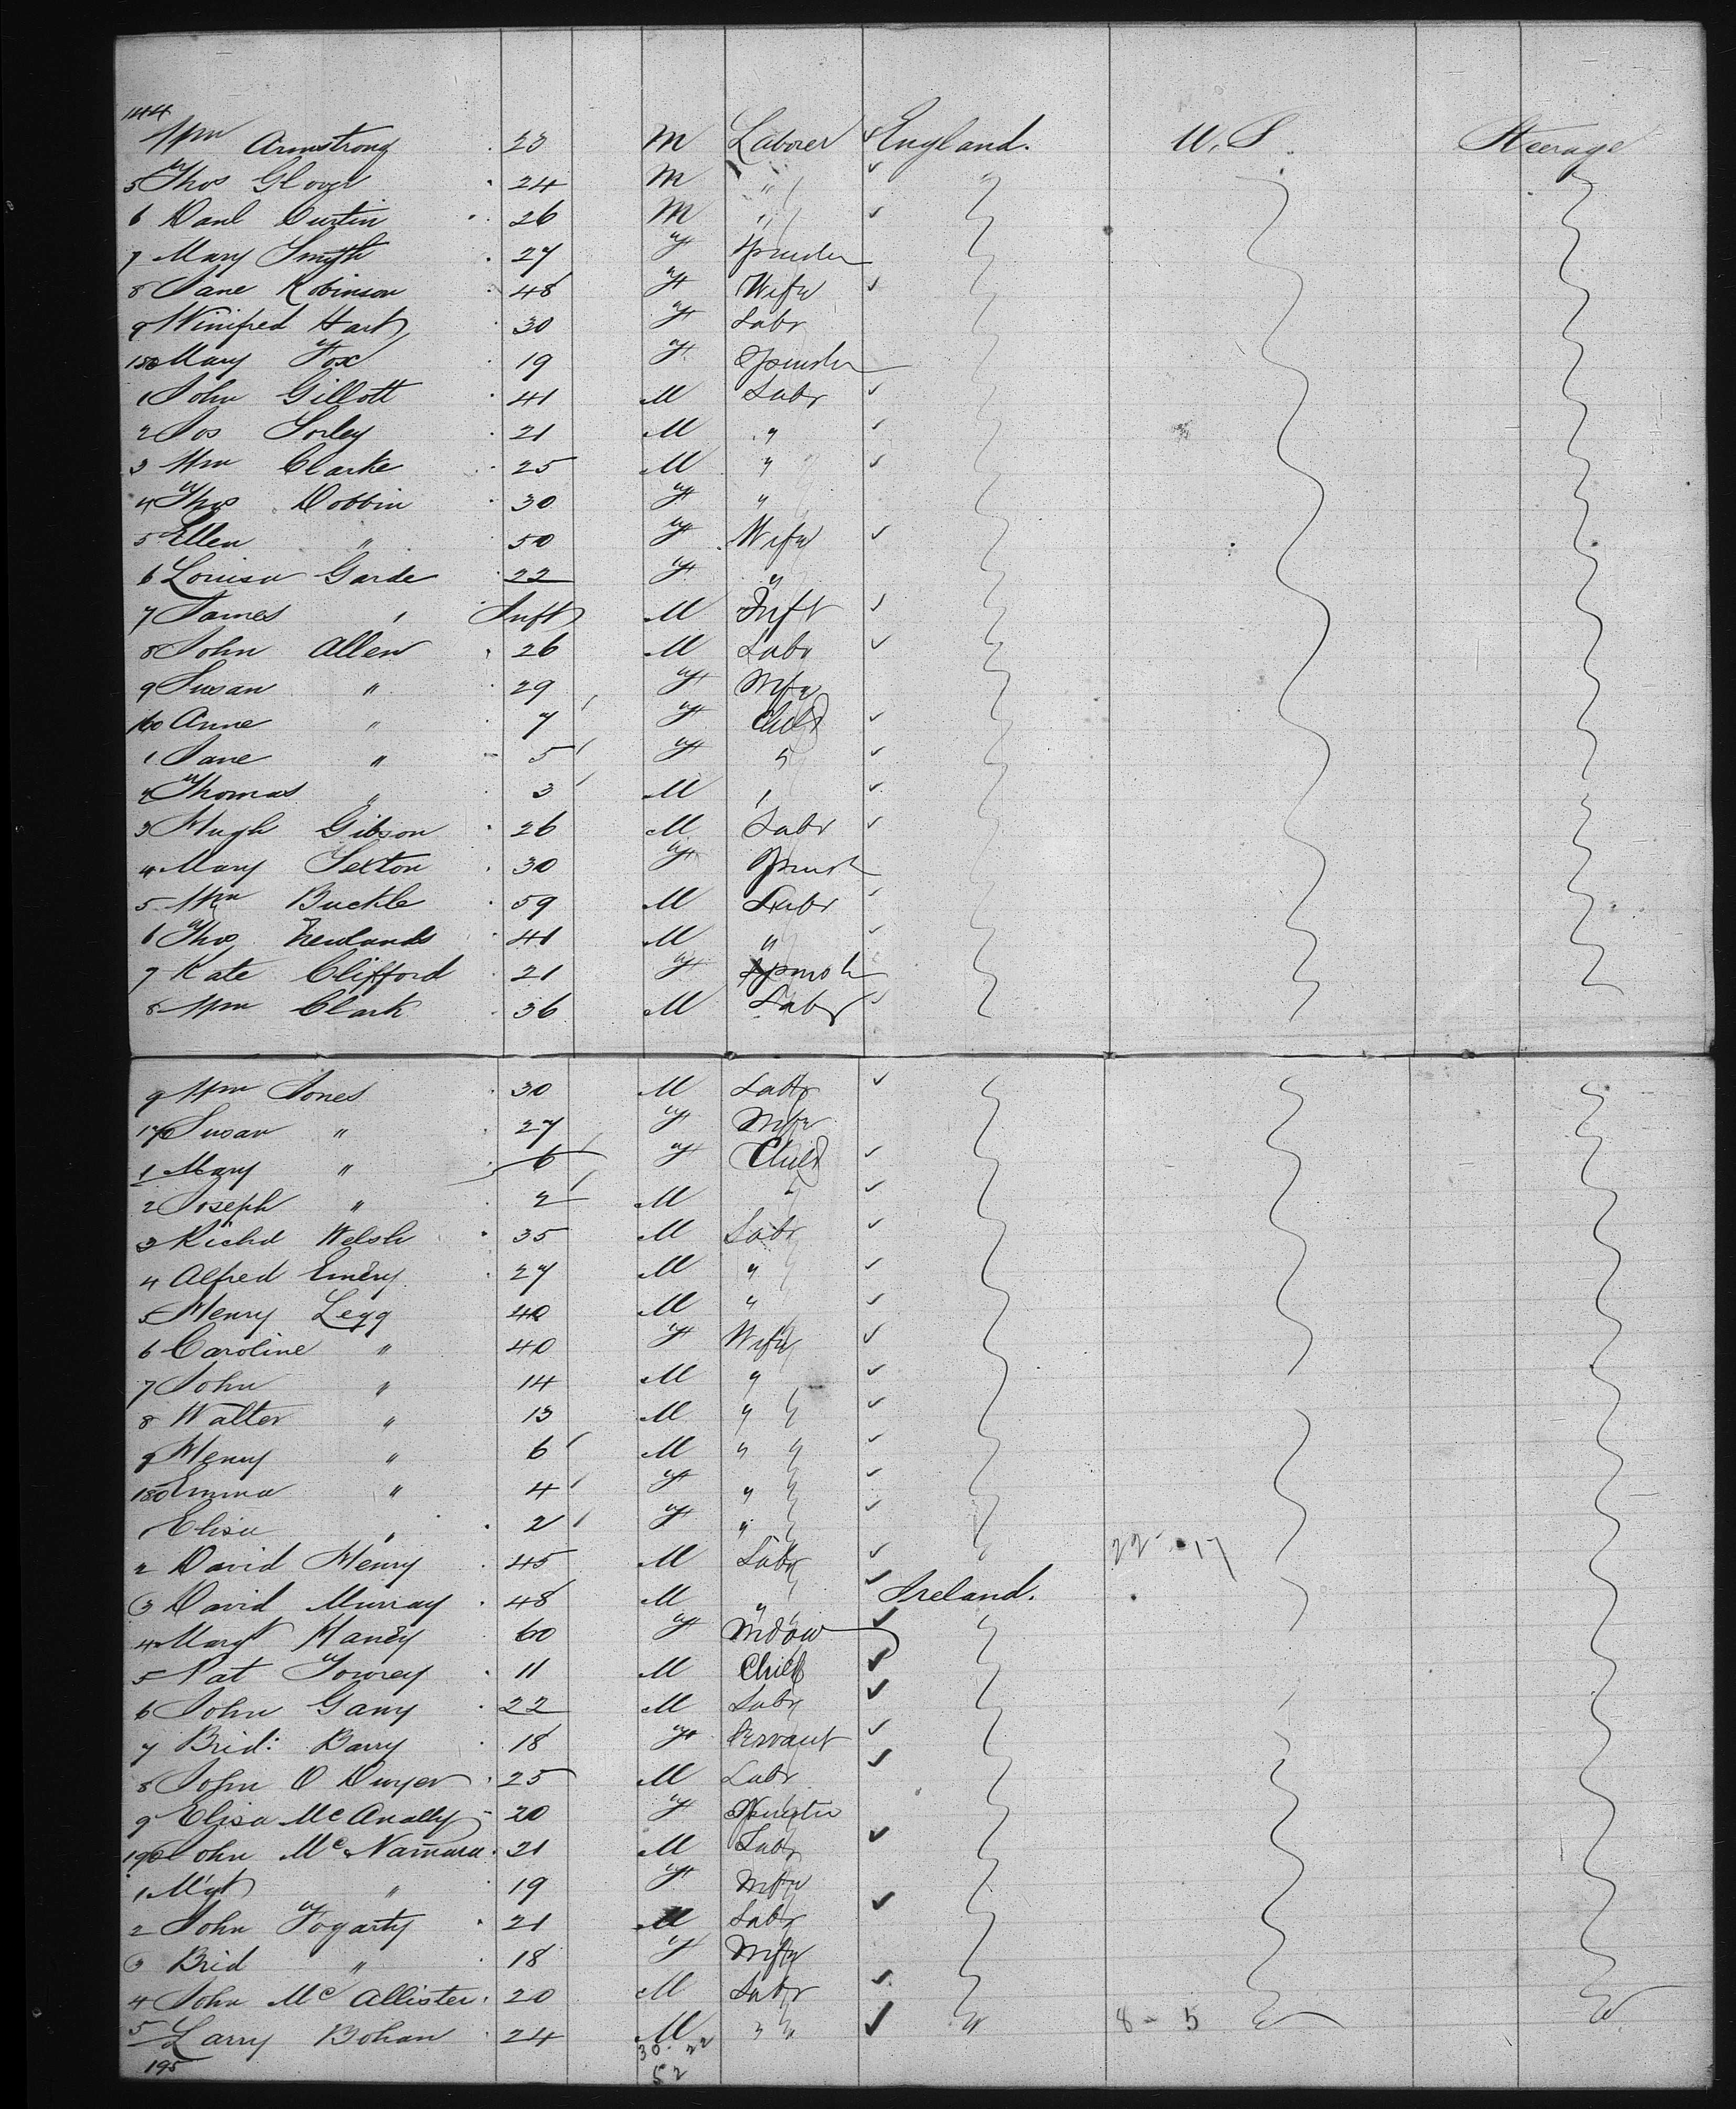 144 Wm Armstrong 23 M Laborer England. U.S. Steerage
5 Thos Glover 24 M "
6 Danl Durtin 26 M "
7 Mary Smyth 27 F Spinster
8 Jane Robinson 48 F Wife
9 Winifred Hart 30 F Labr
150 Mary Fox 19 F Spinster
1 John Gillott 41 M Labr
2 Jos Sorley 21 M "
3 Wm Clarke 25 M "
4 Thos Dobbin 30 F "
5 Ellen " 50 F Wife
6 Louisa Garde 22 F "
7 James " Inft M Inft
8 John Allen 26 M Labr
9 Susan " 29 F Wife
160 Anne " 7 F Child
1 Jane " 5 F "
2 Thomas " 3 M "
3 Hugh Gibson 26 M Labr
4 Mary Sexton 30 F Spinstr
5 Wm Buckle 59 M Labr
6 Thos Newlands 41 M "
7 Kate Clifford 21 F Spinstr
8 Wm Clark 36 M Labr
9 Wm Jones 30 M Labr
170 Susan " 27 F Wife
1 Mary " 6 F Child
2 Joseph " 2 M "
3 Richd Welsh 35 M Labr
4 Alfred Emery 27 M "
5 Henry Legg 40 M "
6 Caroline " 40 F Wife
7 John " 14 M "
8 Walter " 13 M "
9 Henry " 6 M "
180 Emma " 4 F "
1 Elisa " 2 F "
2 David Henry 45 M Labr 22 17
3 David Murray 48 M " Ireland.
4 Margt Haney 60 F Widow
5 Pat Towrey 11 M Child
6 John Gany 22 M Labr
7 Brid: Barry 18 F Servant
8 John O Dwyer 25 M Labr
9 Elisa McAnally 20 F Spinster
190 John McNamara 21 M Labr
1 Mgt " 19 F Wife
2 John Fogarty 21 M Labr
3 Brid " 18 F Wife
4 John McAllister 20 M Labr
5 Larry Bohan 24 M " 8 - 5
195 30 22
52